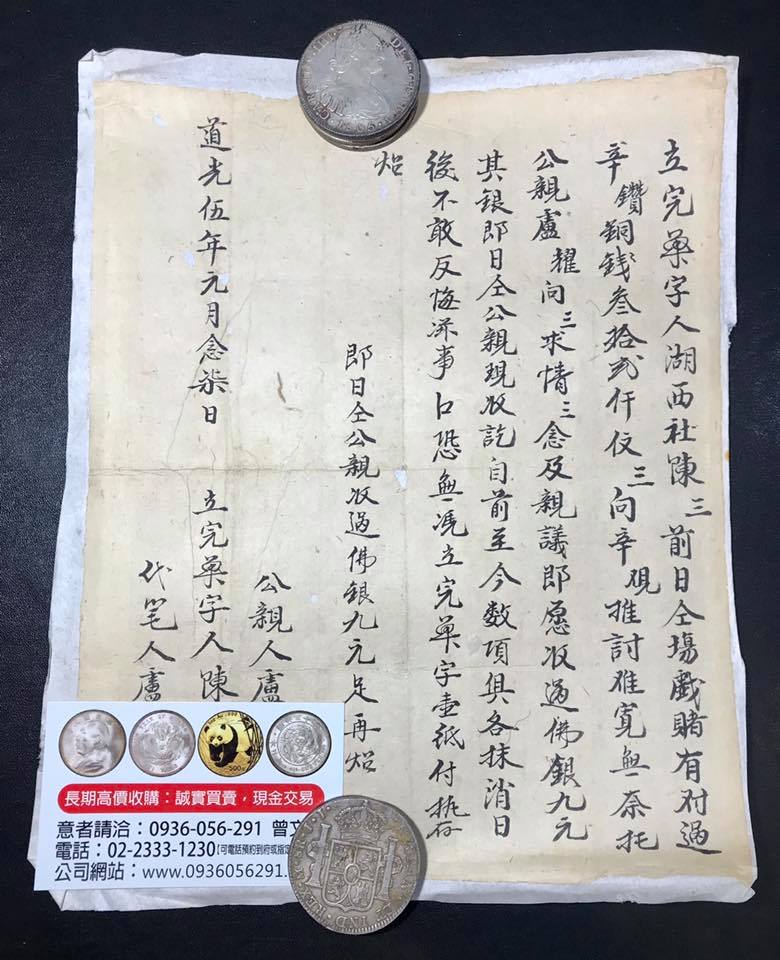 立完單字人湖西社陳三前日仝塲戲賭有对過
辛鑽銅錢叁拾弍仟三向辛推討难寬無奈托
公親盧耀向三求情三念及親議即愿收過佛銀九元
其銀即日仝公親現收訖自前至今数項俱各抹消日
後不敢反悔滋事口恐無凴立完單字壹紙付执
炤
即日仝公親收過佛銀九元足再炤
公親人盧
道光伍年元月念柒日 立完單字人陳
代笔人盧
長期高價收購：誠實買賣，現金交易
意者請洽：0936-056-291 曾
電話：02-2333-1230【可電話預約到府或指定
公司網站：www.0936056291.